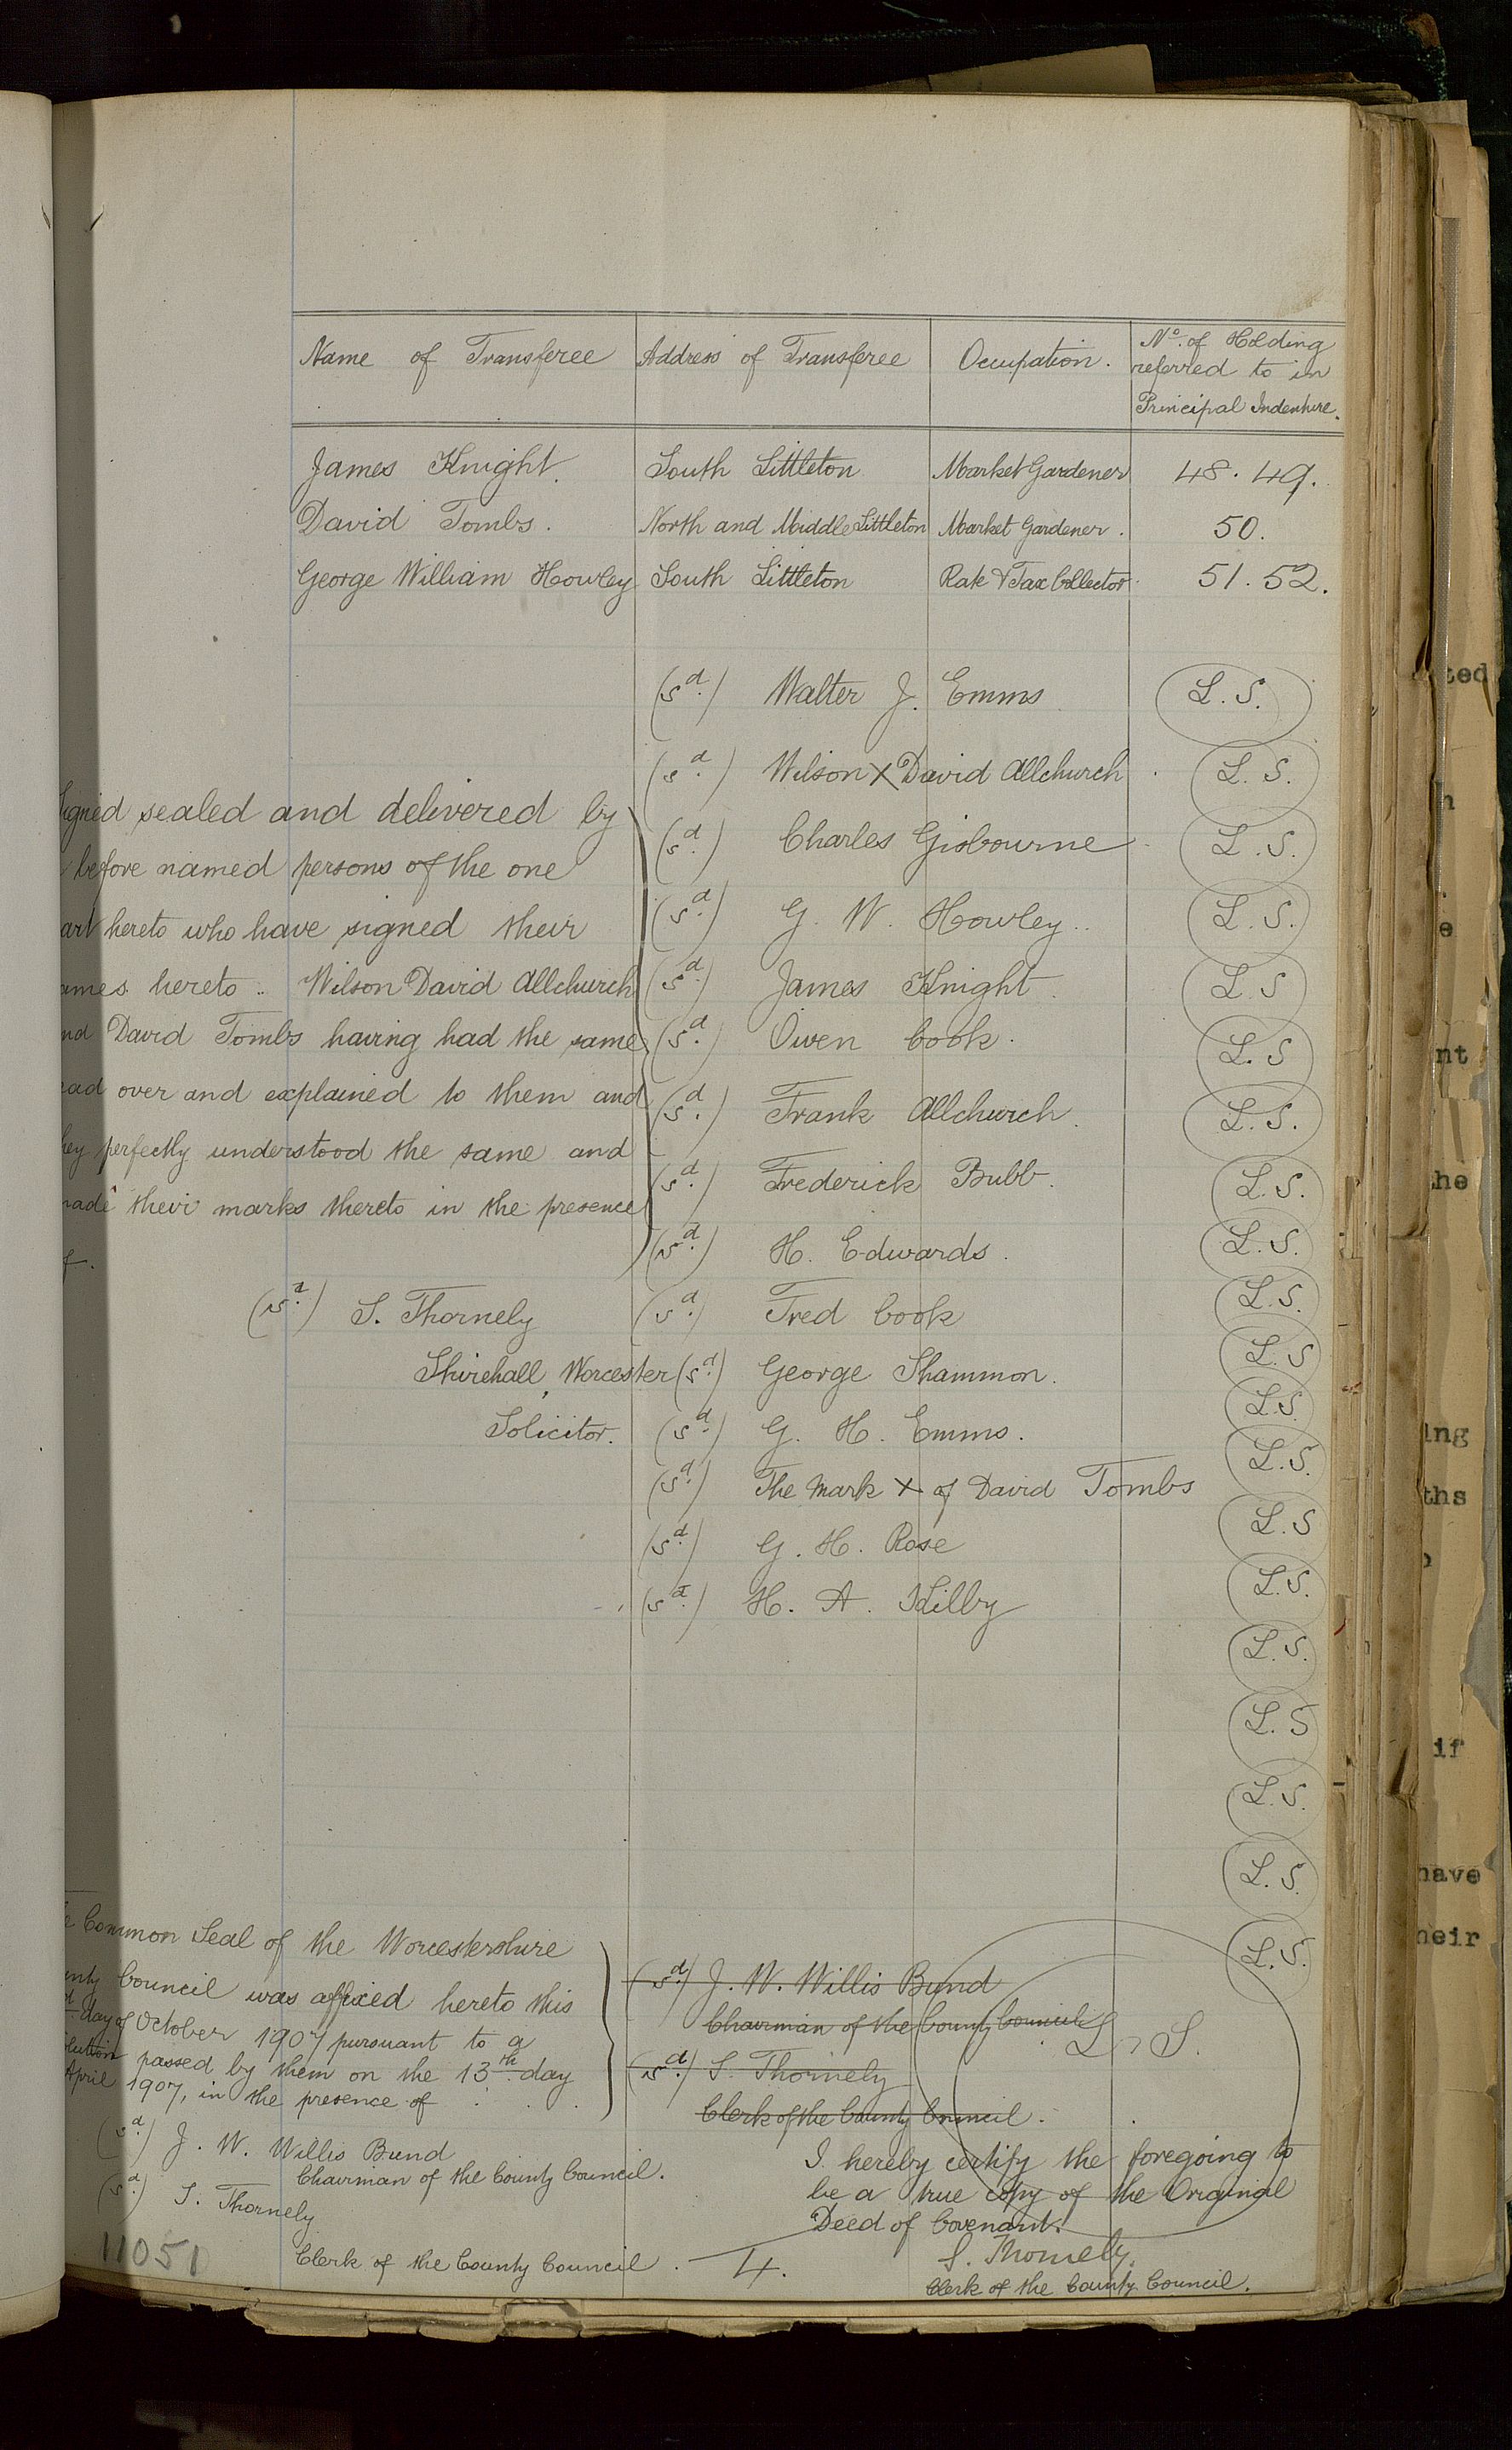 Name of Transferee Address of Transferee Occupation. No. of Holding
referred to in
Principal Indenture.
James Knight. South Littleton Market Gardener 48. 49.
David Tombs. North and Middle Littleton Market Gardener. 50.
George William Howley South Littleton Rate & Tax Collector. 51. 52.
(sd.) Walter J. Emms L. S.
(sd.) Wilson X David Allchurch L. S.
(sd.) Charles Gisbourne L. S.
(sd.) G. W. Howley.. L. S.
(sd.) James Knight. L. S
(sd.) Owen Cook. L. S
(sd.) Frank Allchurch. L. S.
(sd.) Frederick Bubb. L. S.
(sd.) H. Edwards. L. S.
(sd.) Fred Cook L. S.
(sd.) George Shammon. L. S
(sd.) G. H. Emms. L. S.
(sd.) The mark X of David Tombs L. S.
(sd.) G. H. Rose L. S
(sd.) H. A. Hilby L. S.
L. S.
L. S
L. S.
L. S.
L. S.
signed sealed and delivered by
before named persons of the one
art hereto who have signed their
ames hereto .. Wilson David Allchurch
nd David Tombs having had the same
ead over and explained to them and
hey perfectly understood the same and
made their marks thereto in the presence
f.
(sd.) S. Thornely
Shirehall, Worcester
Solicitor.
e Common Seal of the Worcestershire
unty Council was affixed hereto this
d day of October 1907 pursuant to a
olution passed by them on the 13th day
April 1907, in the presence of
(sd.) J. W. Willis Bund
Chairman of the County Council.
(sd.) S. Thornely
Clerk of the County Council.
(sd.) J. W. Willis Bund
Chairman of the County Council
(sd.) S. Thornely
Clerk of the County Council.
L. S.
I hereby certify the foregoing to
be a true copy of the Original
Deed of Covenant.
S. Thornely.
Clerk of the County Council.
4.
11051
ted
h
e
nt
he
ing
ths
if
have
heir